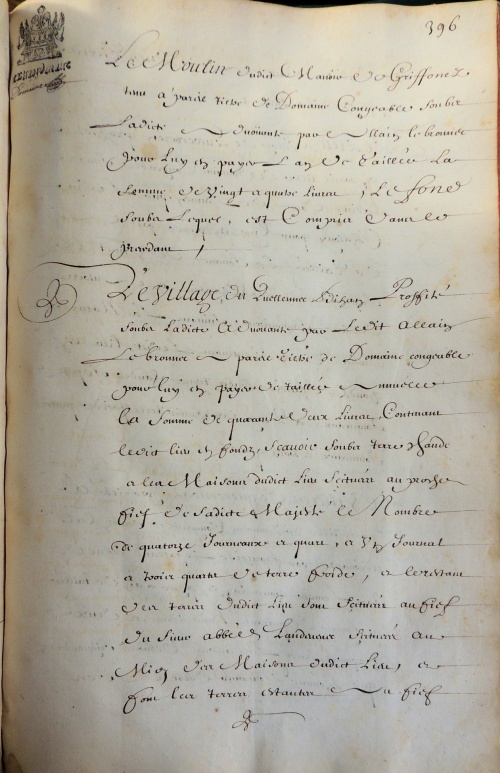 396
Le Moulin dudict Manoir de Griffonez
tenu a pareil tiltre de Domaine Congeable soubz
Ladicte advouante par Allain le bronnec
pour luy en payer L an de taillée La
somme de vingt et quatre livres, Le fond
soubz Lequel, est Comprix dans le
precedant /
Le Village du Quellennec Profitté
soubz Ladicte advouante par Ledit Allain
Le bronnec pareil tiltre de Domaine congeable
pour luy en payer de taillée annuelle
La somme de quarante deux Livres, Contenant
ledict lieu en fondz, scavoir soubz terre chaude
et les Maisons dudict Lieu scituées au proche
fief de sadicte Majesté le Nombre
de quatorze Journeaux et quart, et un Journal
et trois quartz de terre froide, et le restant
des terres dudict Lieu sont scituées au fief
du sieur abbé de Landevenec scituées au
Midy des Maisons dudict Lieu, et
sont les terres estantes au fief